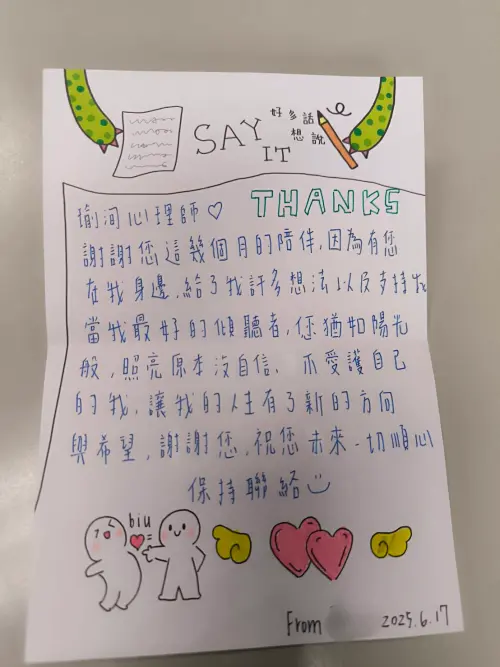 SAY IT
好多話
想說
THANKS
瑜洵心理師♡
謝謝您這幾個月的陪伴,因為有您
在我身邊,給了我許多想法以及支持我
當我最好的傾聽者,您猶如陽光
般,照亮原本沒自信、不愛護自己
的我,讓我的人生有了新的方向
與希望,謝謝您,祝您未來一切順心
保持聯給
biu
From
2025.6.17